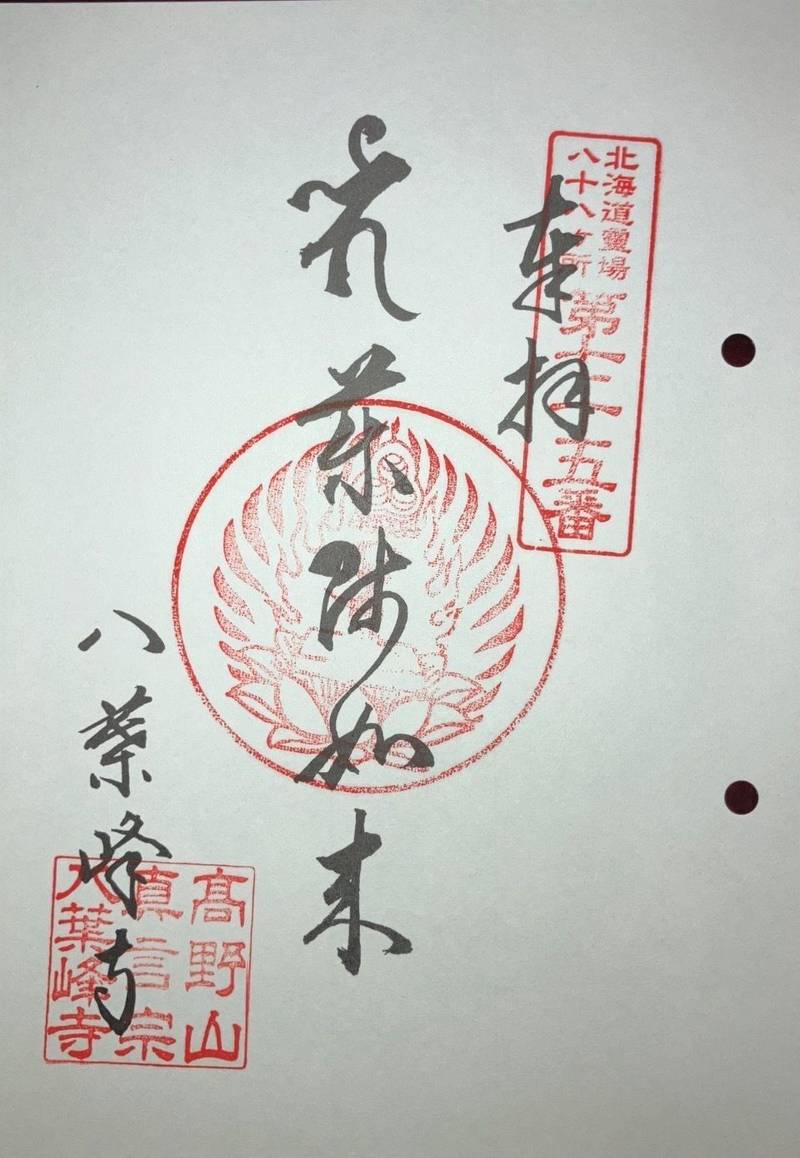 北海道靈場
八十八ヶ所
五番
奉拝
薬師如来
八葉峰寺
高野山
真言宗
八葉峰寺